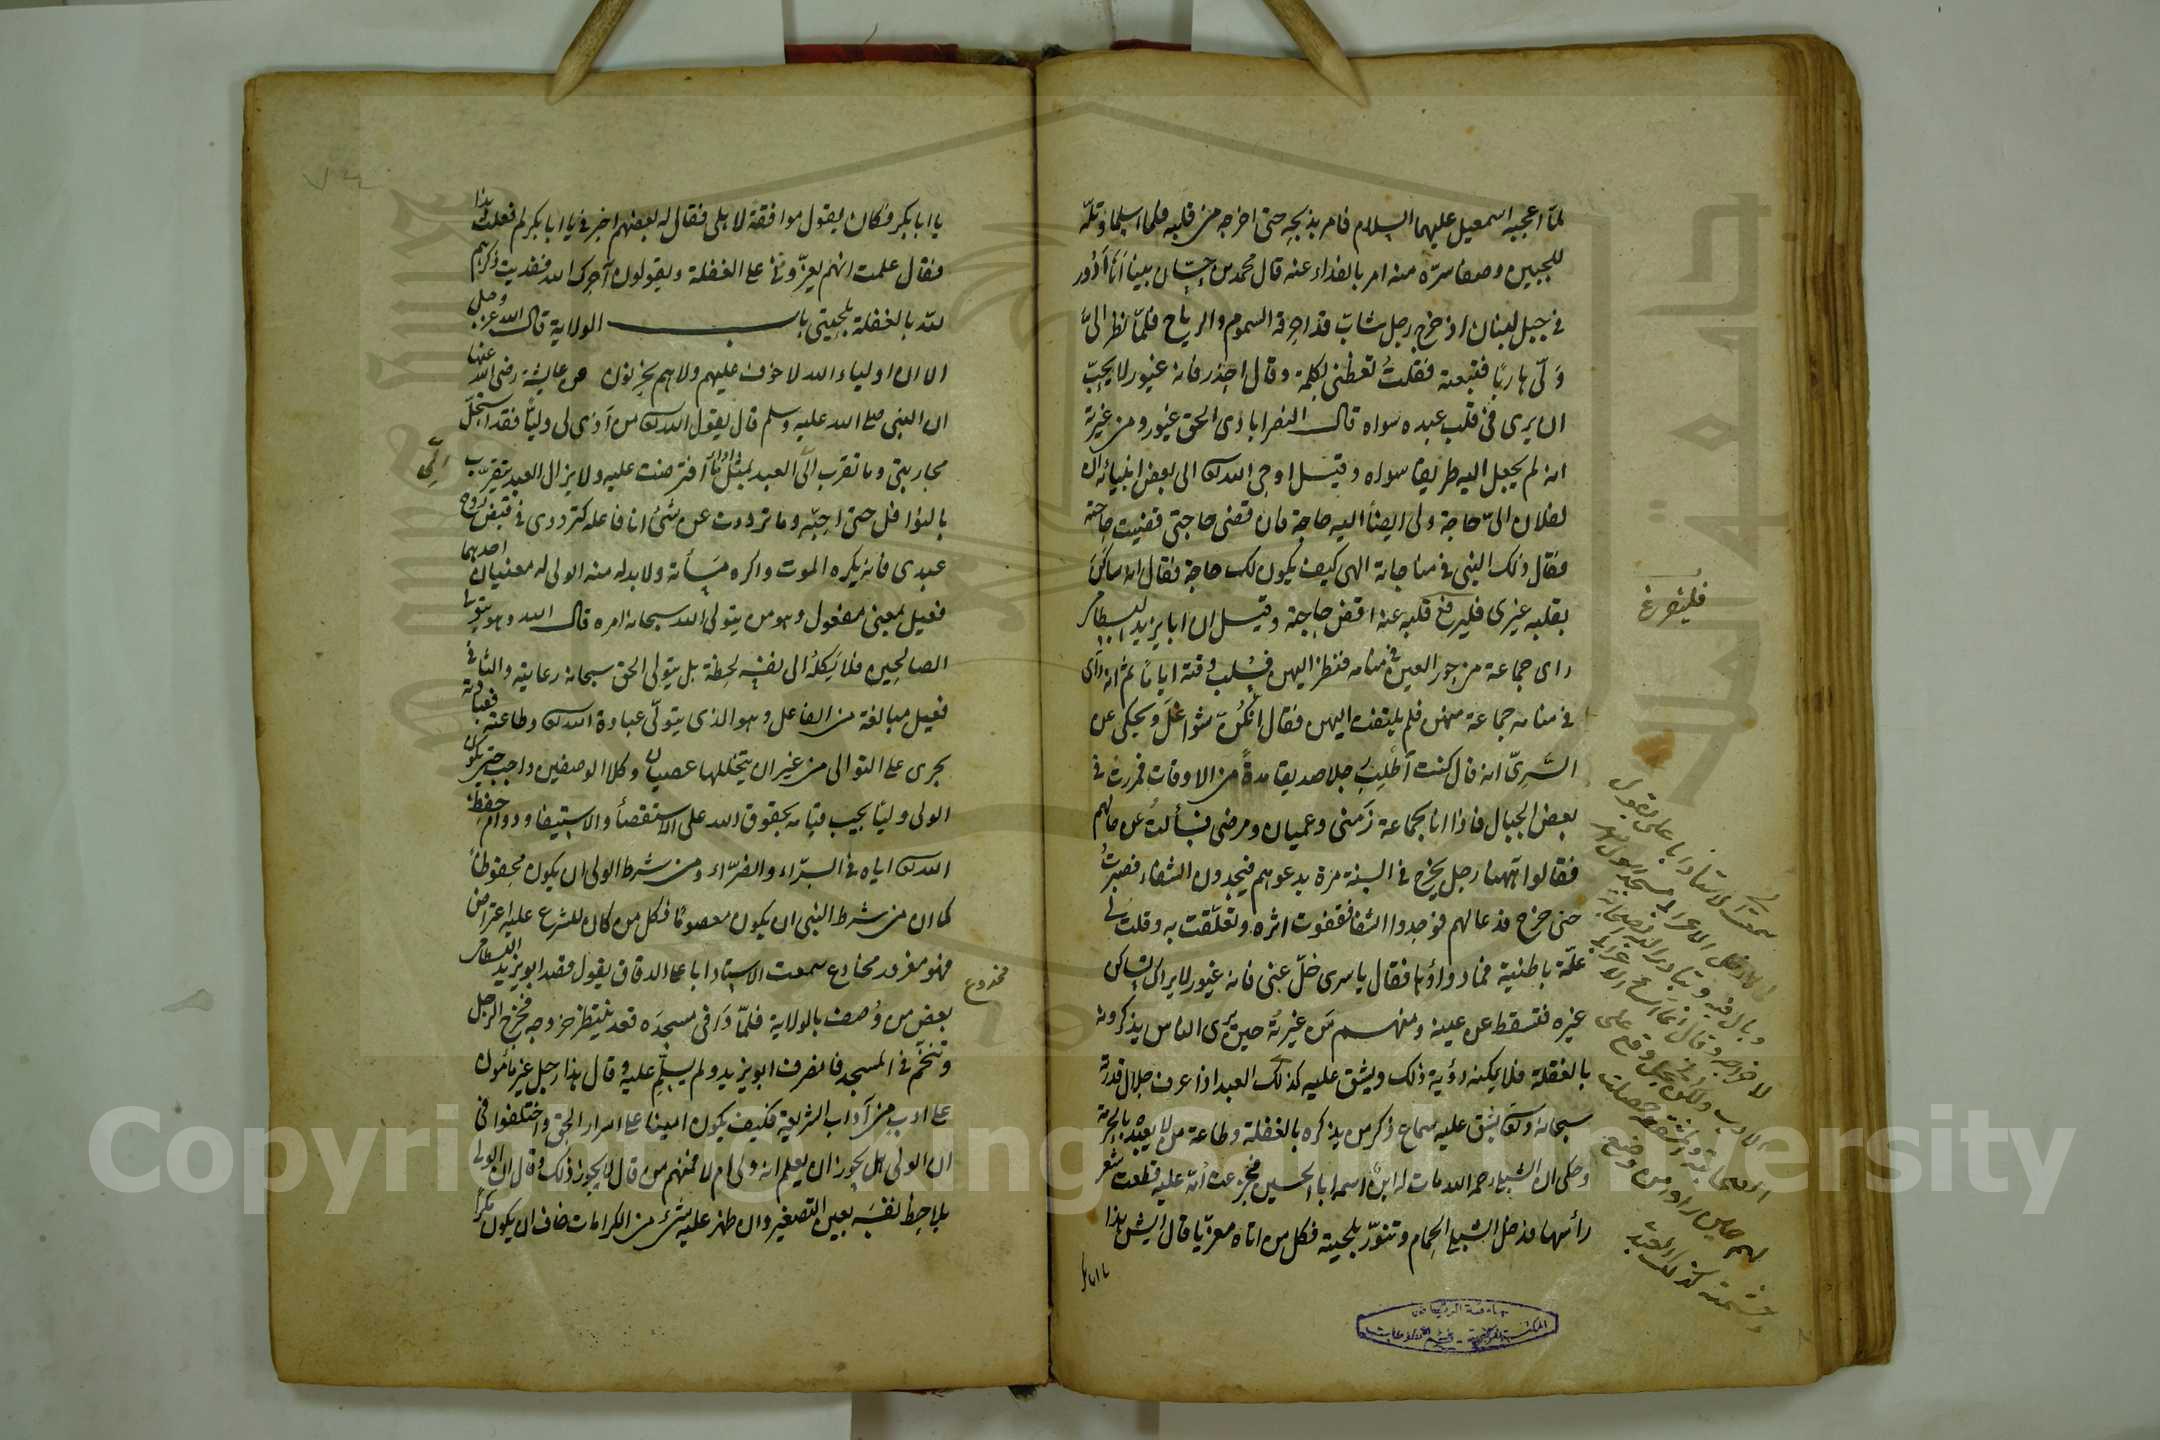 لمّا اعجبه اسمعيل عليهما السلام فامر بذبحه حتى اخرجه من قلبه فلما اسلما وتلّه
للجبين وصفا سرّه منه امر بالفداء عنه قال محمد بن حسّان بينا انا ادور
في جبل لبنان اذ خرج رجل شابّ قد احرقه السموم والرياح فلمّا نظر اليّ
ولّى هاربًا فتبعته فقلتُ تعظني بكلمة وقال احذر فانه غيور لا يحبّ
ان يرى في قلب عبده سواه قال النصرابادى الحق غيور ومن غيرته
انه لم يجعل اليه طريقا سواه وقيل اوحى الله تعالى الى بعض انبيائه ان
لفلان اليّ حاجة ولى ايضًا اليه حاجة فان قضى حاجتى قضيت حاجته
فقال ذلك النبى في مناجاته الهى كيف يكون لك حاجة فقال انه ساكن
بقلبه غيرى فليفرغ قلبه عنه اقض حاجته وقيل ان ابا يزيد البسطامى
راى جماعة من حور العين في منامه فنظر اليهن فسلب وقته ايامًا ثم انه راى
في منامه جماعة منهن فلم يلتفت اليهن فقال انكنّ شواغل ويحكى عن
السّرىّ انه قال كنت اطلب رجلا صديقا مدةً من الاوقات فمررت في
بعض الجبال فاذا انا بجماعة زمنى وعميان ومرضى فسألتُ عن حالهم
فقالوا ههنا رجل يخرج في السنة مرة يدعو لهم فيجدون الشفاء فصبرتُ
حتى خرج فدعا لهم فوجدوا الشفا فقفوت اثره وتعلّقت به وقلت لى
علّة باطنية فما دواؤها فقال يا سرى خلّ عنى فانه غيور لا يراك تساكن
غيره فتسقط عن عينه ومنهم من غيرته حين يرى الناس يذكرونه
بالغفلة فلا يمكنه رؤية ذلك ويشق عليه كذلك العبد اذا عرف جلال قدرته
سبحانه وتعالى يشق عليه سماع ذكر من يذكره بالغفلة وطاعة من لا يعبده بالحرمة
وحكى ان الشبلى رحمه الله مات له ابنٌ اسمه ابا الحسين فجزعت امّه عليه قطعت شعر
رأسها فدخل الشبلى الحمام وتنوّر بلحيته فكل من اتاه معزّيا قال ايش هذا
يا ابا
فليتفرغ
جامعة الرياض
المكتبة المركزية - قسم المخطوطات
يا ابا بكر فكان يقول موافقة لاهلى فقال له بعضهم اخبرنى يا ابا بكر لم فعلت هذا
فقال علمت انهم يعزّوننى على الغفلة ويقولون آجرك الله ففديت ذكرهم
لله بالغفلة بلحيتى باب الولاية قال الله عز وجل
الا ان اولياء الله لا خوف عليهم ولا هم يحزنون عن عايشة رضى الله عنها
ان النبى صلى الله عليه وسلم قال يقول الله تعالى من آذى لى وليًّا فقد استحلّ
محاربتى وما تقرب الىّ العبد بمثل اداء ما افترضت عليه ولا يزال العبد يتقرّب الىّ
بالنوافل حتى احبّه وما ترددت عن شئ انا فاعله كترددى في قبض روح
عبدى فانه يكره الموت واكره مسأته ولا بد له منه الولى له معنيان احدهما
فعيل بمعنى مفعول وهو من يتولى الله سبحانه امره قال الله وهو يتولى
الصالحين فلا يَكِلُه الى نفسه لحظة بل يتولى الحق سبحانه رعايته والثانى
فعيل مبالغة من الفاعل وهو الذى يتولّى عبادة الله تعالى وطاعته فعبادته
تجرى على التوالى من غير ان يتخللها عصيان وكلا الوصفين واجب حتى يكون
الولى وليًا يجب قيامه بحقوق الله على الاستقصاء والاستيفا ودوام حفظ
الله تعالى اياه في السرّاء والضرّاء ومن شرط الولى ان يكون محفوظًا
كما ان من شرط النبى ان يكون معصومًا فكل من كان للشرع عليه اعتراض
فهو مغرور مخادع سمعت الاستاد ابا على الدقاق يقول قصد ابو يزيد البسطامى
بعض من وُصف بالولاية فلمّا وافى مسجده قعد ينتظر خروجه فخرج الرجل
وتنخّم في المسجد فانصرف ابو يزيد ولم يسلّم عليه وقال هذا رجل غير مأمون
على ادب من آداب الشريعة فكيف يكون امينا على اسرار الحق واختلفوا في
ان الولى هل يجوز ان يعلم انه ولى ام لا فمنهم من قال لا يجوز ذلك وقال ان الولى
يلاحظ نفسَه بعين التصغير وان ظهر عليه شئ من الكرامات خاف ان يكون مكرًا
مخدوع
Copyright © King Saud University